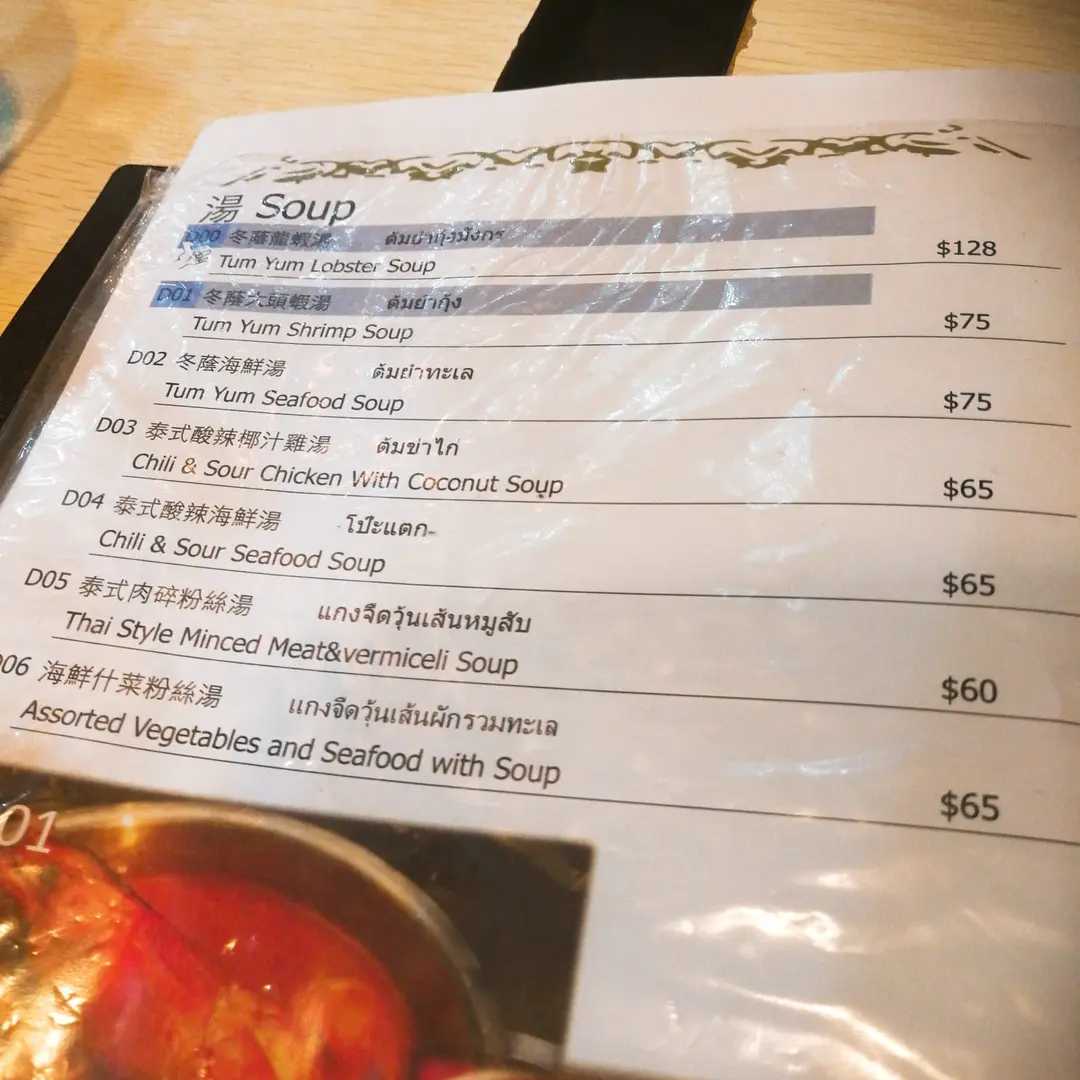 湯 Soup
D00 冬蔭龍蝦湯 ต้มยำกุ้งมังกร
Tum Yum Lobster Soup $128
D01 冬蔭大頭蝦湯 ต้มยำกุ้ง
Tum Yum Shrimp Soup $75
D02 冬蔭海鮮湯 ต้มยำทะเล
Tum Yum Seafood Soup $75
D03 泰式酸辣椰汁雞湯 ต้มข่าไก่
Chili & Sour Chicken With Coconut Soup $65
D04 泰式酸辣海鮮湯 โป๊ะแตก
Chili & Sour Seafood Soup $65
D05 泰式肉碎粉絲湯 แกงจืดวุ้นเส้นหมูสับ
Thai Style Minced Meat&vermiceli Soup $60
D06 海鮮什菜粉絲湯 แกงจืดวุ้นเส้นผักรวมทะเล
Assorted Vegetables and Seafood with Soup $65
01